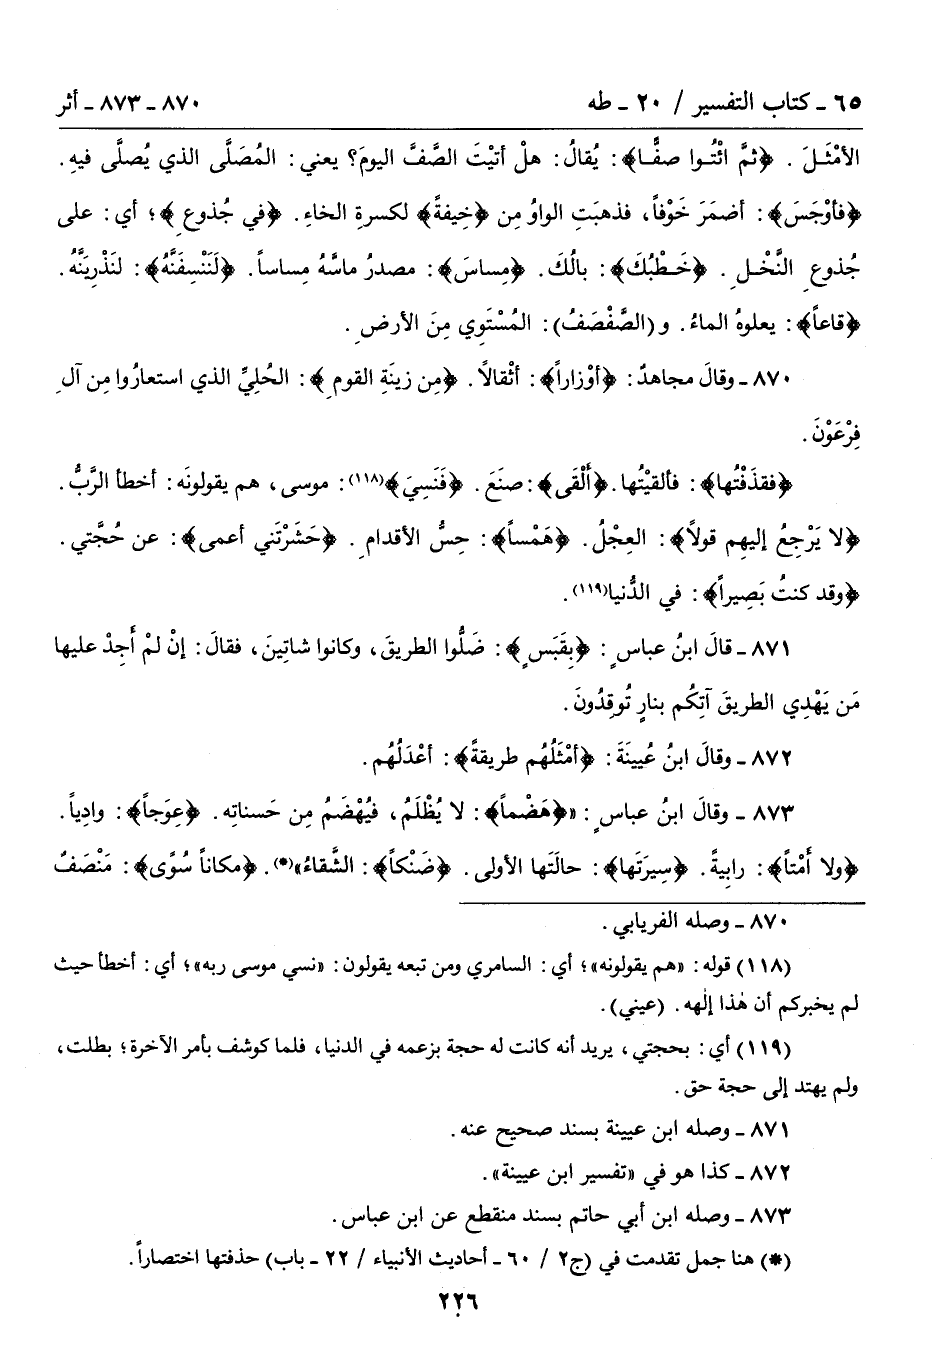 ٦٥ ـ كتاب التفسير / ٢٠ ـ طه
٨٧٠ ـ ٨٧٣ ـ أثر
الأمْثَـلَ . ﴿ثمَّ ائْتُـوا صفًّـا﴾: يُقالُ: هلْ أتيْتَ الصَّفَّ اليومَ؟ يعني: المُصَلَّى الذي يُصلَّى فيهِ.
﴿فأوْجَسَ﴾: أضمَرَ خَوْفاً، فذهبَتِ الواوُ مِن ﴿خِيفةً﴾ لكسرةِ الخاءِ. ﴿في جُذوعِ﴾؛ أي: على
جُذوعِ النَّخْـلِ. ﴿خَـطْبُكَ﴾: بالُكَ. ﴿مِساسَ﴾: مصدرُ ماسَّهُ مِساساً. ﴿لَنَنْسِفَنَّهُ﴾: لنَذْرِيَنَّهُ.
﴿قاعاً﴾: يعلوهُ الماءُ. و(الصَّفْصَفُ): المُسْتَوِي مِنَ الأرضِ.
٨٧٠ ـ وقالَ مجاهدٌ: ﴿أوْزاراً﴾: أثْقالاً. ﴿مِن زينَةِ القومِ﴾: الحُلِيِّ الذي استعارُوا مِن آلِ
فِرْعَوْنَ.
﴿فقذَفْتُها﴾: فألقيْتُها. ﴿أَلْقَى﴾: صنَعَ. ﴿فَنَسِيَ﴾(١١٨): موسى، هم يقولونَه: أخطأ الرَّبُّ.
﴿لا يَرْجِعُ إليهِم قولاً﴾: العِجْلُ. ﴿هَمْساً﴾: حِسُّ الأقدامِ. ﴿حَشَرْتَني أعمى﴾: عن حُجَّتي.
﴿وقد كنتُ بَصِيراً﴾: في الدُّنيا(١١٩).
٨٧١ ـ قالَ ابنُ عباسٍ: ﴿بِقَبَسٍ﴾: ضَلُّوا الطريقَ، وكانوا شاتِينَ، فقالَ: إنْ لمْ أجِدْ عليها
مَن يَهْدِي الطريقَ آتِكُم بنارٍ تُوقِدُونَ.
٨٧٢ ـ وقالَ ابنُ عُيينَةَ: ﴿أمْثَلُهُم طريقةً﴾: أعْدَلُهُم.
٨٧٣ ـ وقالَ ابنُ عباسٍ: «﴿هَضْماً﴾: لا يُظْلَمُ، فيُهْضَمُ مِن حَسناتِه. ﴿عِوَجاً﴾: وادِياً.
﴿ولا أمْتاً﴾: رابِيةً. ﴿سِيرَتَها﴾: حالَتَها الأولى. ﴿ضَنْكاً﴾: الشَّقاءُ»(*). ﴿مكاناً سُوًى﴾: مَنْصَفٌ
٨٧٠ ـ وصله الفريابي.
(١١٨) قوله: «هم يقولونه»؛ أي: السامري ومن تبعه يقولون: «نسي موسى ربه»؛ أي: أخطأ حيث
لم يخبركم أن هٰذا إلٰهه. (عيني).
(١١٩) أي: بحجتي، يريد أنه كانت له حجة بزعمه في الدنيا، فلما كوشف بأمر الآخرة؛ بطلت،
ولم يهتد إلى حجة حق.
٨٧١ ـ وصله ابن عيينة بسند صحيح عنه.
٨٧٢ ـ كذا هو في «تفسير ابن عيينة».
٨٧٣ ـ وصله ابن أبي حاتم بسند منقطع عن ابن عباس.
(*) هنا جمل تقدمت في (ج٢ / ٦٠ ـ أحاديث الأنبياء / ٢٢ ـ باب) حذفتها اختصاراً.
٢٢٦